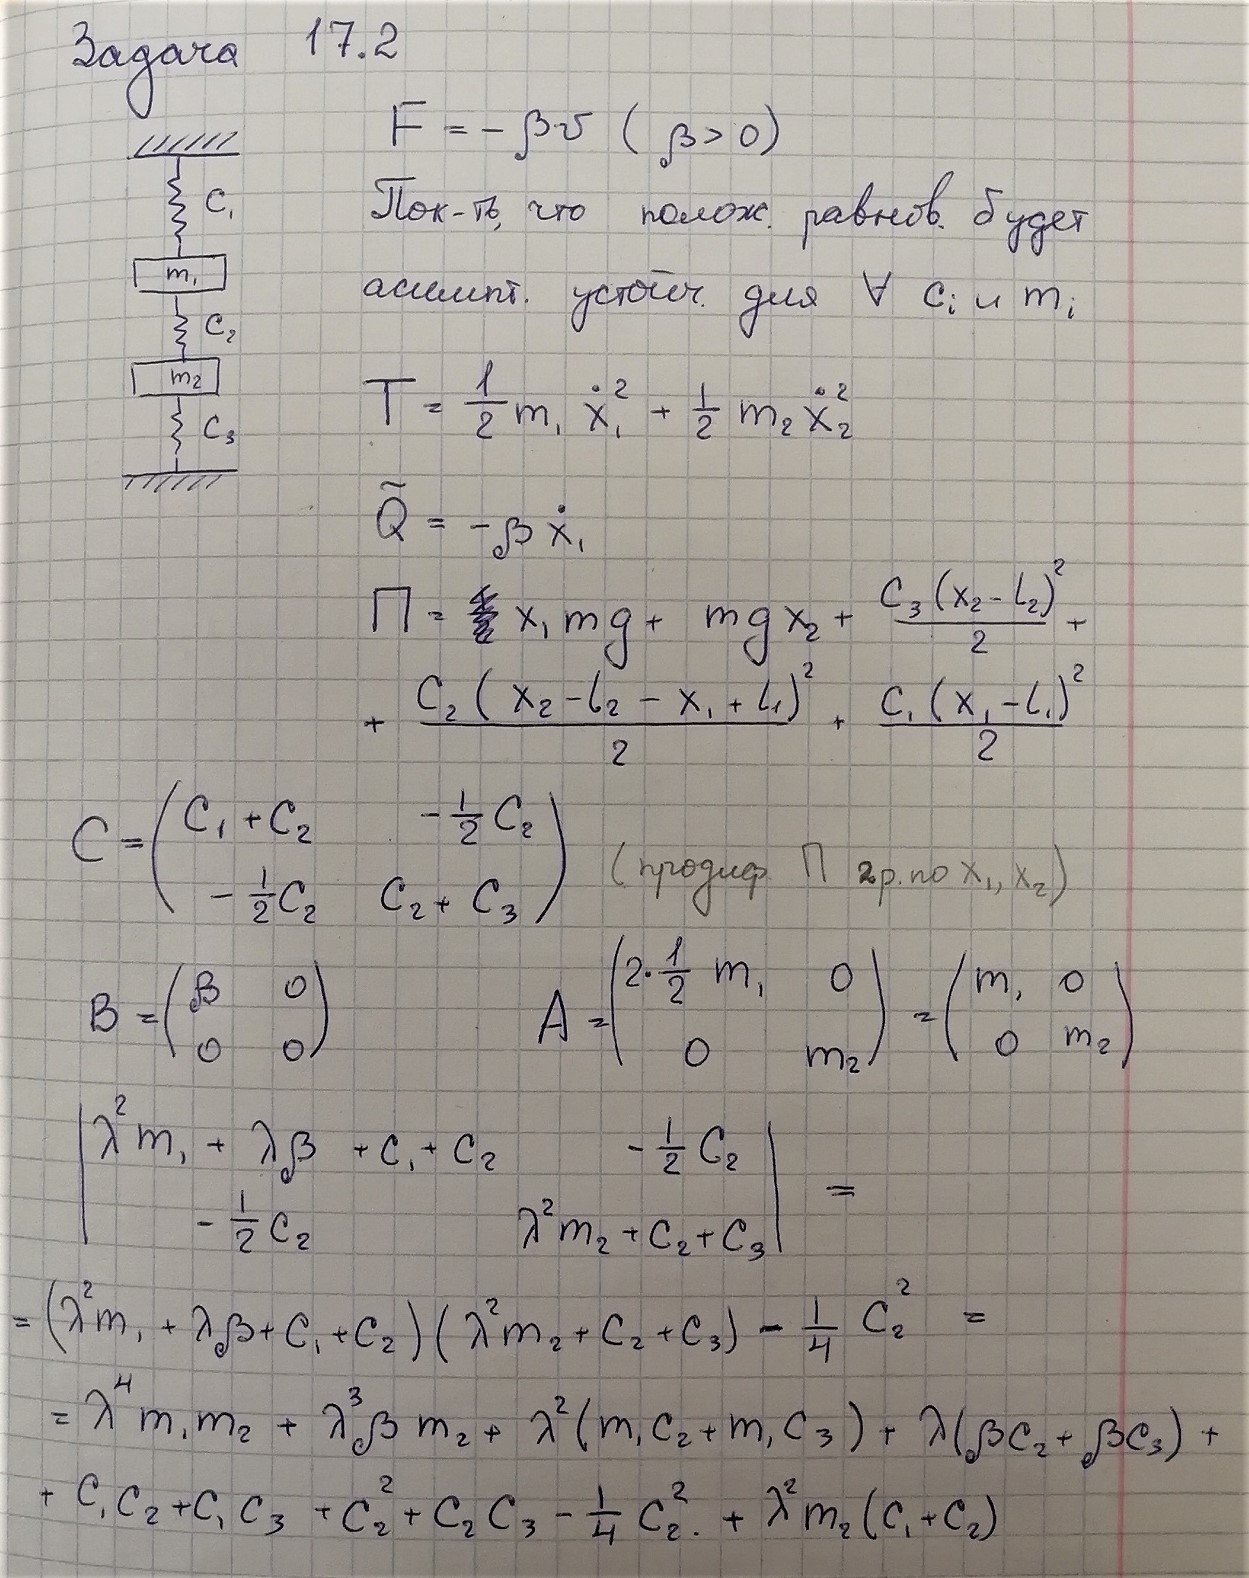 Задача 17.2
F = - βv ( β > 0)
Пок-ть, что полож. равнов. будет
асимпт. устойч. для ∀ cᵢ и mᵢ
C₁
m₁
C₂
m₂
C₃
T = 1/2 m₁ ẋ₁² + 1/2 m₂ ẋ₂²
Q̃ = -β ẋ₁
П = x₁ mg + mg x₂ + C₃ (x₂ - L₂)² / 2 +
+ C₂ ( x₂ - L₂ - x₁ + L₁)² / 2 + C₁ (x₁ - L₁)² / 2
C = ( C₁ + C₂   - 1/2 C₂
- 1/2 C₂   C₂ + C₃ ) (продиф. П 2р. по x₁, x₂)
B = ( β 0
0 0 )
A = ( 2·1/2 m₁   0
0   m₂ ) = ( m₁ 0
0 m₂ )
| λ² m₁ + λβ + C₁ + C₂   - 1/2 C₂
- 1/2 C₂   λ² m₂ + C₂ + C₃ | =
= (λ² m₁ + λβ + C₁ + C₂) ( λ² m₂ + C₂ + C₃) - 1/4 C₂² =
= λ⁴ m₁ m₂ + λ³ β m₂ + λ² (m₁ C₂ + m₁ C₃) + λ(βC₂ + βC₃) +
+ C₁ C₂ + C₁ C₃ + C₂² + C₂ C₃ - 1/4 C₂². + λ² m₂ (C₁ + C₂)